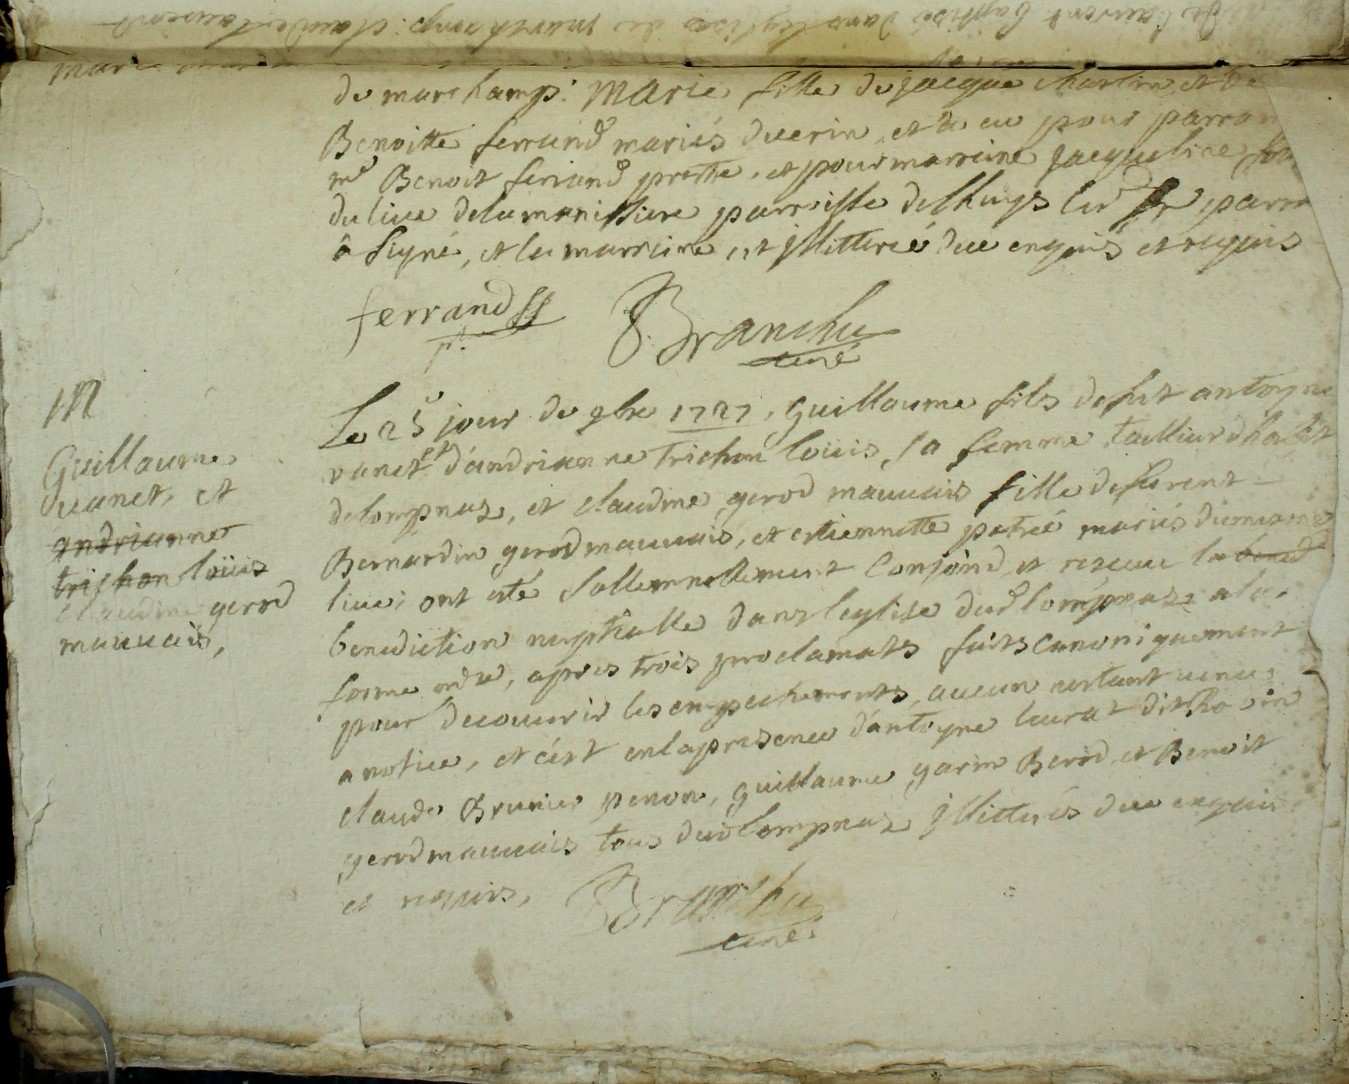 de marchamp. Marie fille de jacque charlin et de
Benoitte ferrand mariés duerin, et a eu pour parrain
mre Benoit ferrand pretre, et pour marraine jacqueline
du lieu delamanissiere parroisse de lhuys led Sr parrain
a signé, et la marraine est jllitterée due enquis et requis
ferrand
ptre
Branchu
curé
M
Guillaume
vanet, et
andrianne
trichon loüis
claudine gerod
mauvais,
Le 25e jour de 9bre 1727, Guillaume fils defut antoyne
vanet et d'andrianne trichon louis, sa femme tailleur dhabit
delompnaz, et claudine gerod mauvais fille de furent
Bernardin gerod mauvais, et estiennette patré mariés dumeme
lieu; ont été sollemnellement conjoind et receu la bened
benediction nuptialle dans leglise dud lompnaz, a la
forme ordre, apres trois proclamats faits canoniquement
pour decouvrir les empechements, aucun nestant venus
a notice, et c'est enlapresence d'antoyne laurat dit
claude Brunier penon, guillaume garin Berod et Benoit
gerod mauvais tous dud lompnaz jllitterés due enquis
et requis,
Branchu
curé